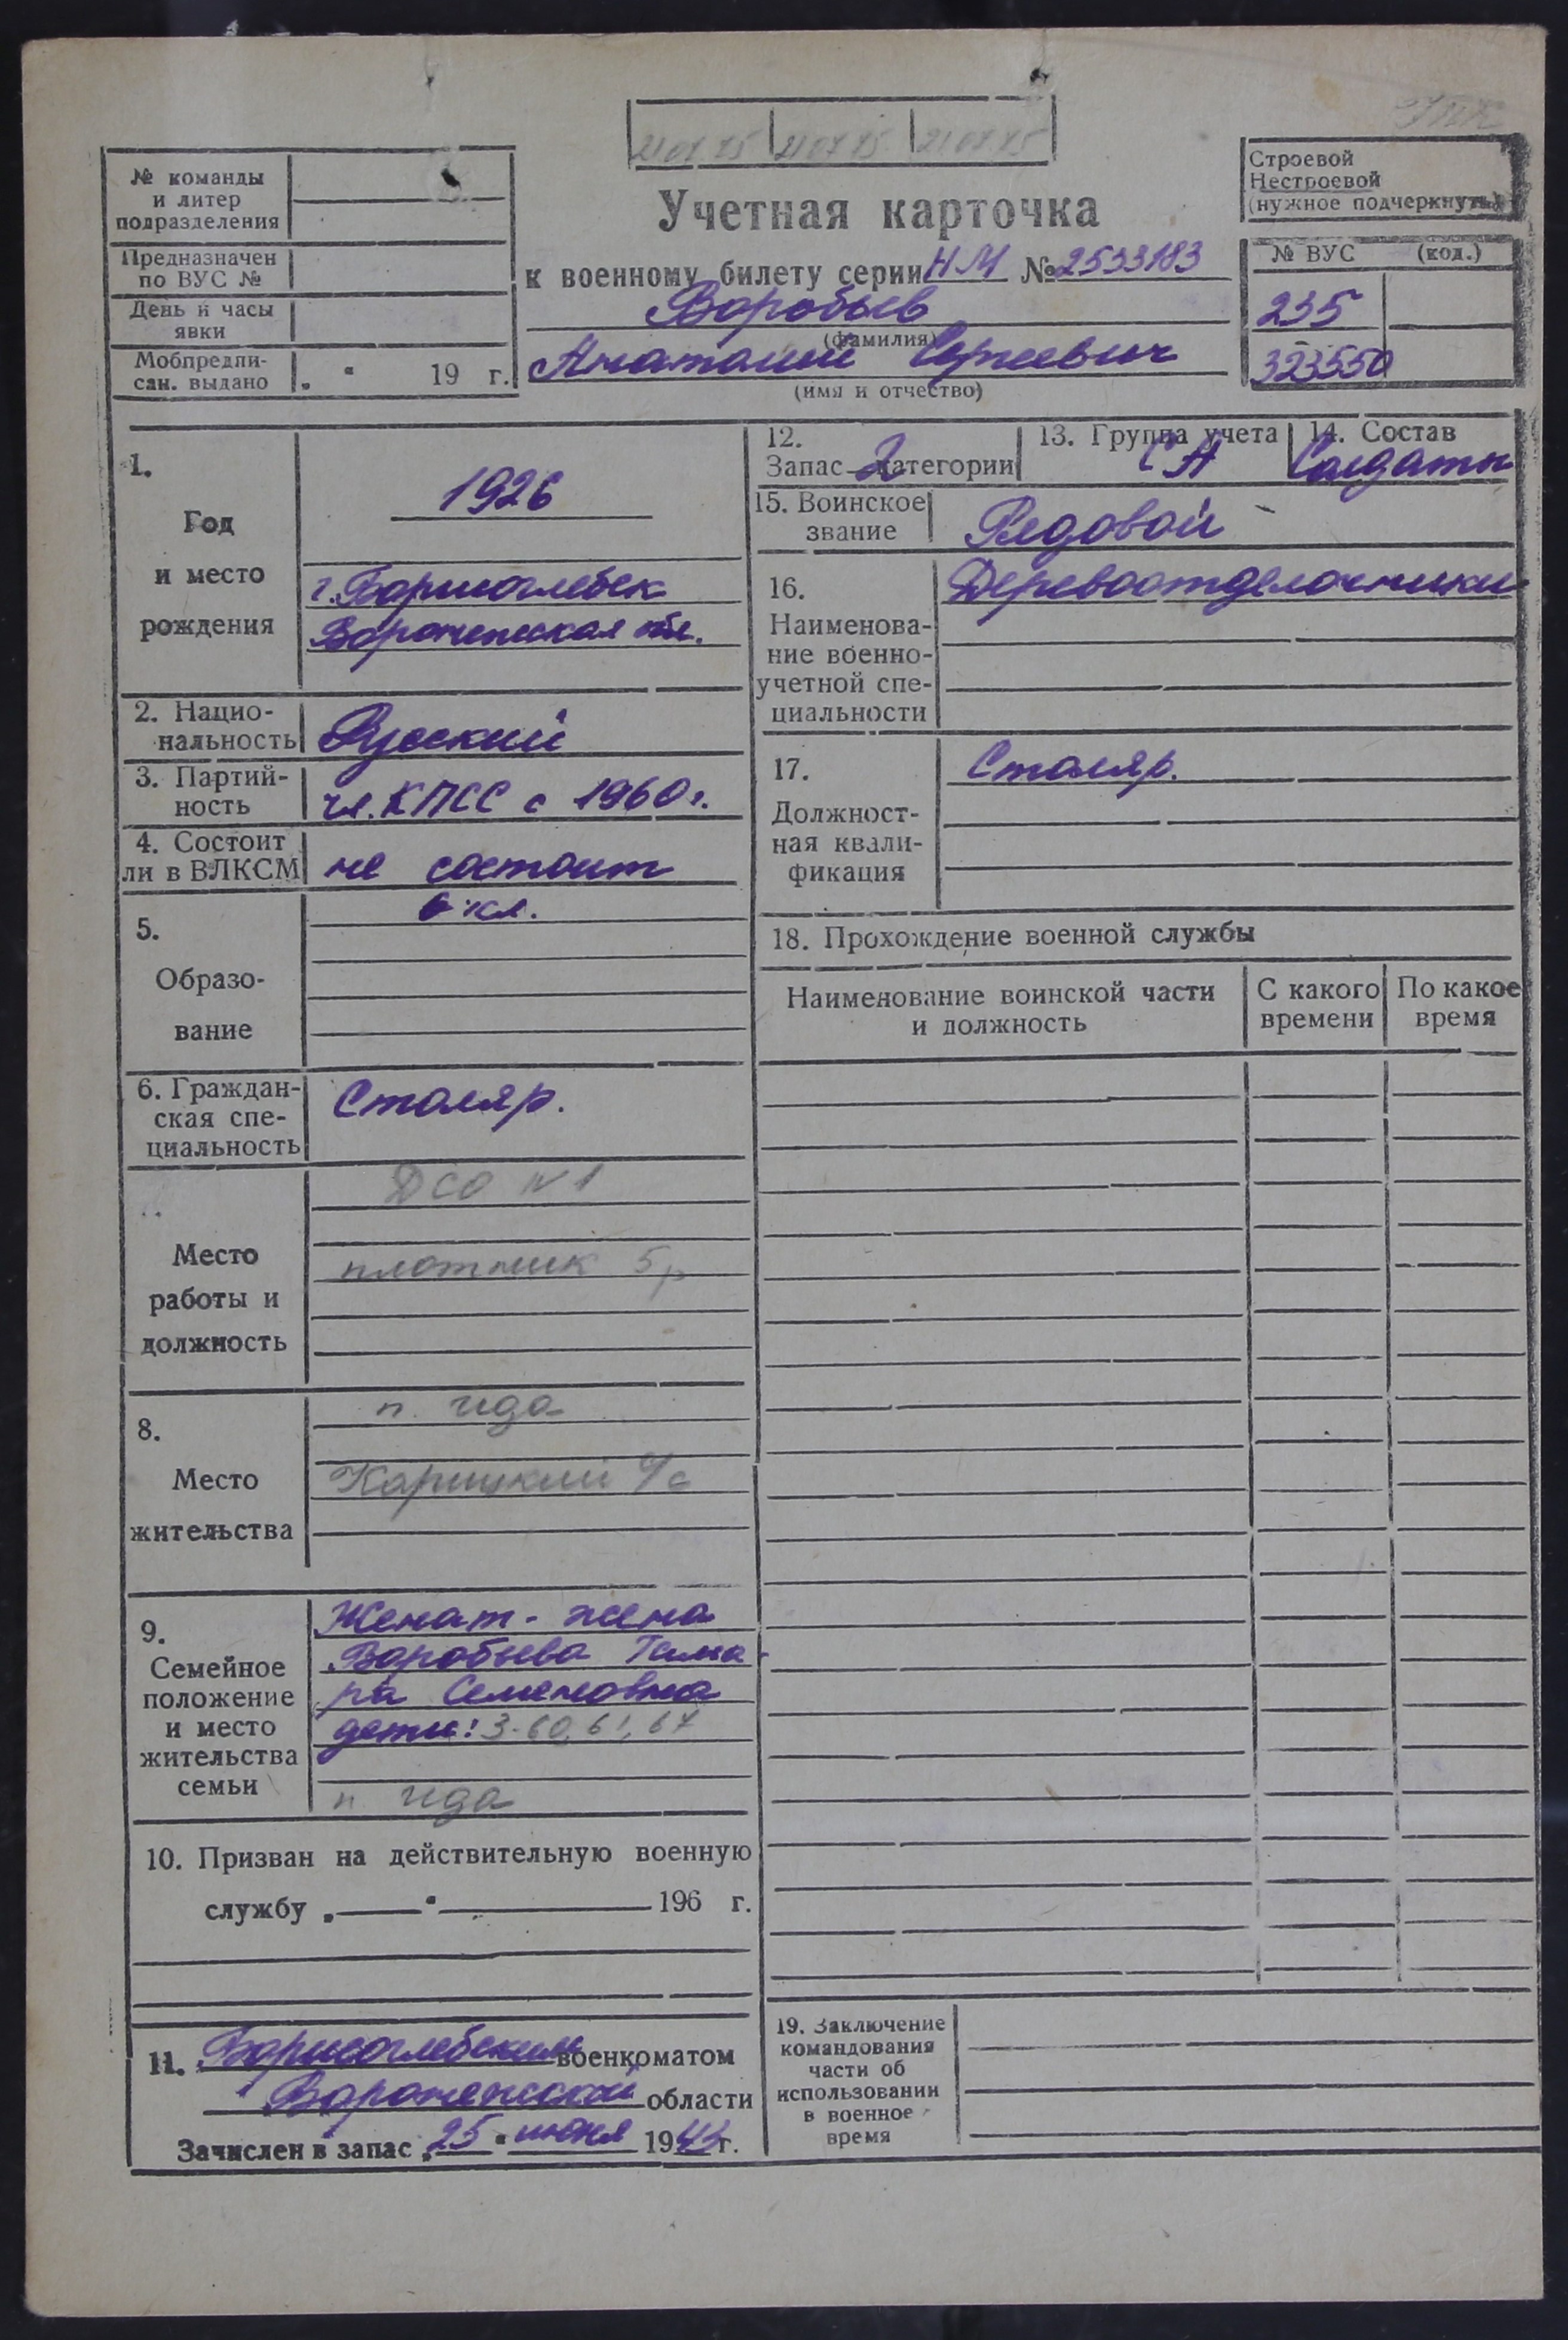 21 07 75 21 07 75 21 07 75
№ команды
и литер
подразделения
Предназначен
по ВУС №
День и часы
явки
Мобпредпи-
сан. выдано „ " 19 г.
Учетная карточка
к военному билету серии НМ № 2533183
Воробьев
(фамилия)
Анатолий Сергеевич
(имя и отчество)
Строевой
Нестроевой
(нужное подчеркнуть)
№ ВУС (код.)
235
323550
1.
Год
и место
рождения
1926
г. Борисоглебск
Воронежская обл.
2. Нацио-
нальность Русский
3. Партий-
ность чл. КПСС с 1960 г.
4. Состоит
ли в ВЛКСМ не состоит
5.
Образо-
вание
6 кл.
6. Граждан-
ская спе-
циальность
Столяр.
Место
работы и
должность
ДСО №1
плотник 5р
8.
Место
жительства
п. Ида
Карицкий с/с
9.
Семейное
положение
и место
жительства
семьи
Женат - жена
Воробьева Тама-
ра Семеновна
дети: 3-60, 61, 67
п Ида
10. Призван на действительную военную
службу „ " 196 г.
11. Борисоглебским военкоматом
Воронежской области
Зачислен в запас „25" июня 19 г.
12.
Запас 2 категории
13. Группа учета СА
14. Состав Солдаты
15. Воинское
звание Рядовой
16.
Наименова-
ние военно-
учетной спе-
циальности
Деревоотделочники
17.
Должност-
ная квали-
фикация
Столяр.
18. Прохождение военной службы
Наименование воинской части
и должность
С какого
времени
По какое
время
19. Заключение
командования
части об
использовании
в военное
время